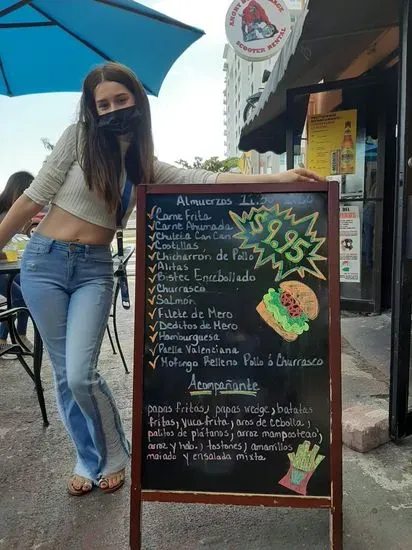 ANGRY
SCOOTER
RENTAL
Almuerzos 11:30 - 2:00
$5.95
✓Carne Frita
✓Carne Ahumada
✓Chuleta Can Can
✓Costillas
✓Chicharron de Pollo
✓Alitas
✓Bistec Encebollado
✓Churrasco
✓Salmón
✓Filete de Mero
✓Deditos de Mero
✓Hamburguesa
✓Paella Valenciana
✓Mofongo Relleno Pollo ó Churrasco
Acompañante
papas fritas, papas wedge, batatas
fritas, yuca frita, aros de cebolla,
palitos de plátanos, arroz mamposteao,
arroz y hab., tostones, amarillos
maiado y ensalada mixta